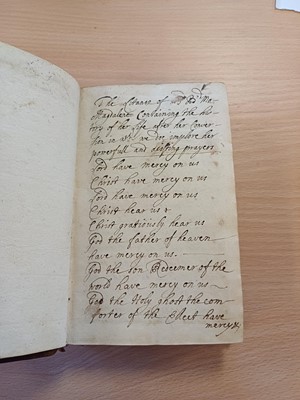 The Litanie of
Magdalene Containing the his-
tory of her life after her conver-
tion in wch we do implore her
powerfull and assisting prayers
lord have mercy on us
Christ have mercy on us
lord have mercy on us
Christ hear us
Christ gratiously hear us
God the father of heaven
have mercy on us
God the son Redeemer of the
world have mercy on us
God the Holy ghost the com-
forter of the Elect have
mercy &c